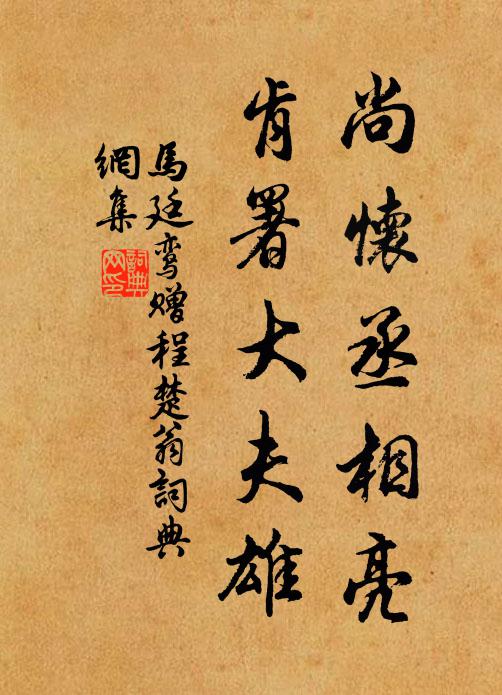 尚懷丞相亮
肯署大夫雄
馬廷鸾赠程楚翁詞典
網集
詞典
网印